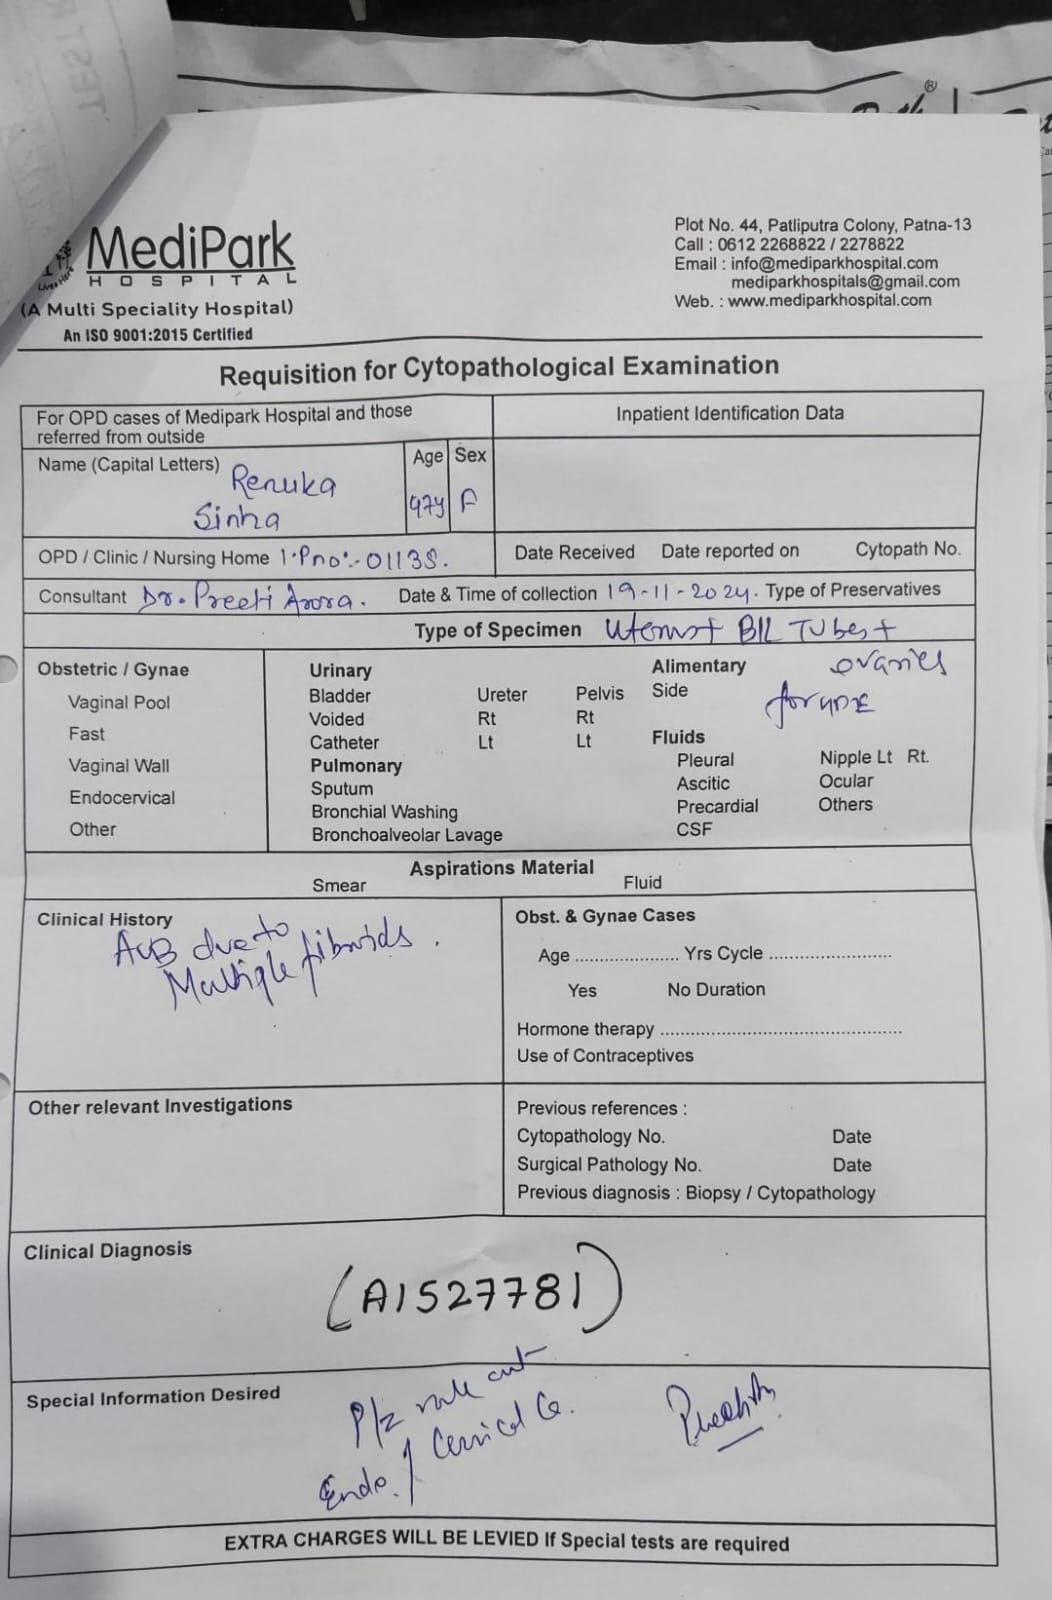 TEST R
®
MediPark
HOSPITAL
(A Multi Speciality Hospital)
An ISO 9001:2015 Certified
Plot No. 44, Patliputra Colony, Patna-13
Call : 0612 2268822 / 2278822
Email : info@mediparkhospital.com
mediparkhospitals@gmail.com
Web. : www.mediparkhospital.com
Requisition for Cytopathological Examination
For OPD cases of Medipark Hospital and those
referred from outside
Inpatient Identification Data
Name (Capital Letters) Renuka
Sinha
Age Sex
47y F
OPD / Clinic / Nursing Home I.Pno:-01135.
Date Received Date reported on Cytopath No.
Consultant Dr. Preeti Arora. Date & Time of collection 19-11-2024. Type of Preservatives
Type of Specimen Uterus+ B/L Tubes+
ovaries
for HPE
Obstetric / Gynae
Vaginal Pool
Fast
Vaginal Wall
Endocervical
Other
Urinary
Bladder Ureter Pelvis
Voided Rt Rt
Catheter Lt Lt
Pulmonary
Sputum
Bronchial Washing
Bronchoalveolar Lavage
Alimentary
Side
Fluids
Pleural Nipple Lt Rt.
Ascitic Ocular
Precardial Others
CSF
Aspirations Material
Smear Fluid
Clinical History
AUB due to
Multiple fibroids.
Obst. & Gynae Cases
Age .................... Yrs Cycle ........................
Yes No Duration
Hormone therapy ................................................
Use of Contraceptives
Other relevant Investigations
Previous references :
Cytopathology No. Date
Surgical Pathology No. Date
Previous diagnosis : Biopsy / Cytopathology
Clinical Diagnosis
(A1527781)
Special Information Desired
Plz rule out
Endo. / Cervical Ca.
EXTRA CHARGES WILL BE LEVIED If Special tests are required